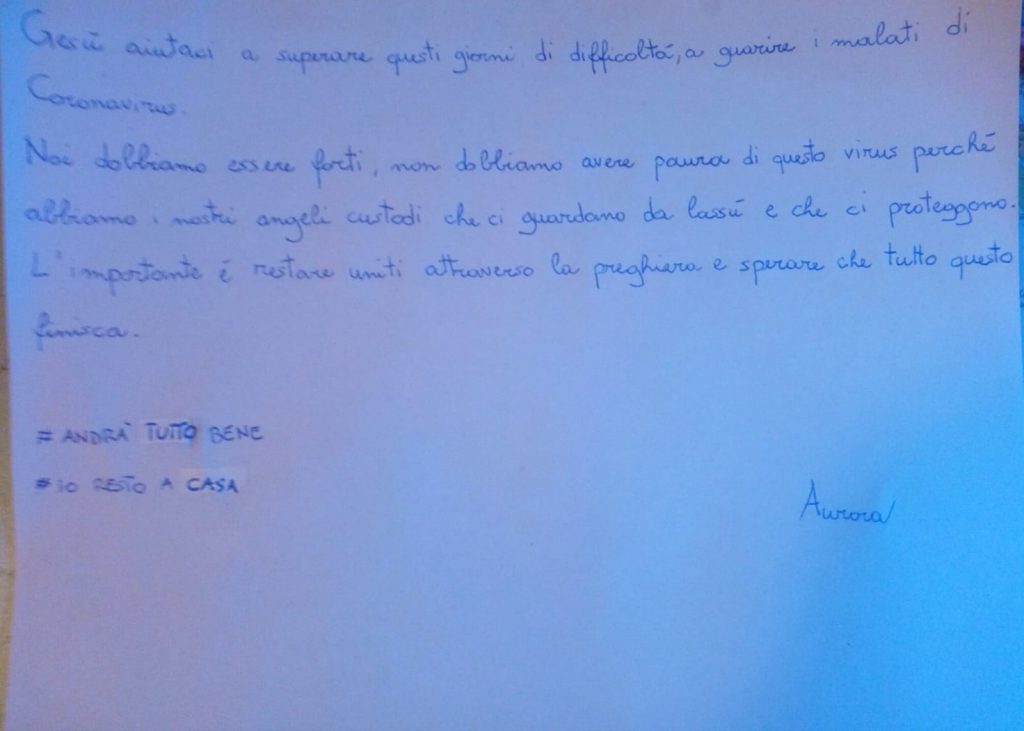 Gesú aiutaci a superare questi giorni di difficoltá, a guarire i malati di
Coronavirus.
Noi dobbiamo essere forti, non dobbiamo avere paura di questo virus perché
abbiamo i nostri angeli custodi che ci guardano da lassú e che ci proteggono.
L'importante é restare uniti attraverso la preghiera e sperare che tutto questo
finisca.
# ANDRA' TUTTO BENE
# IO RESTO A CASA
Aurora